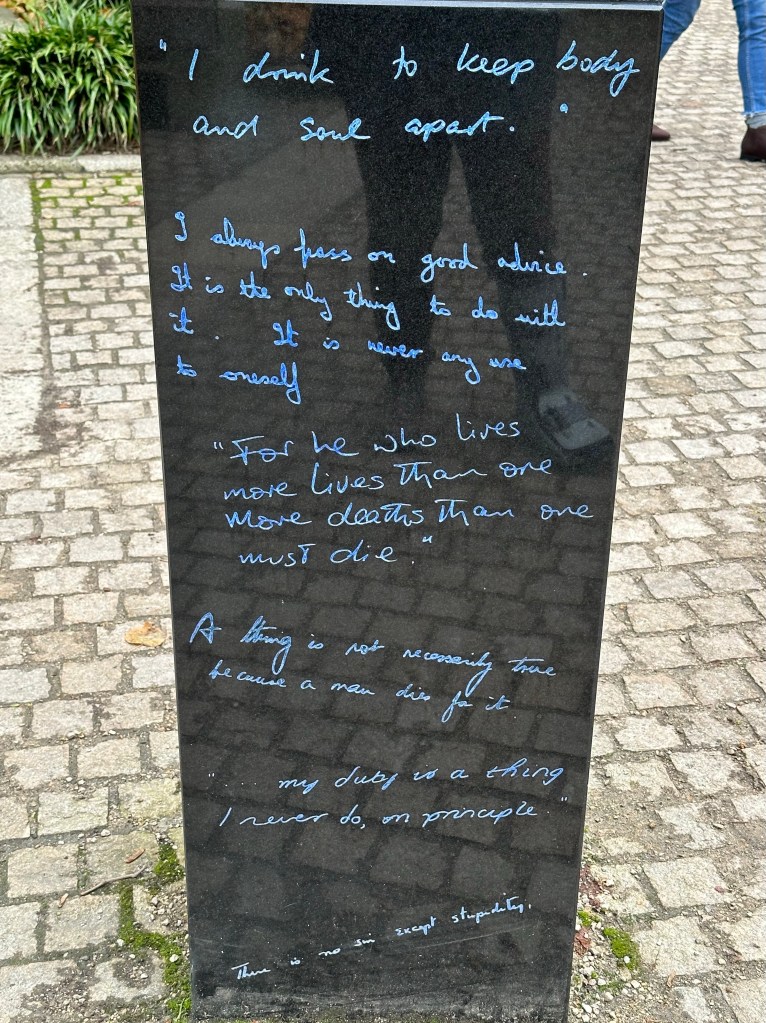 "I drink to keep body
and soul apart."
I always pass on good advice.
It is the only thing to do with
it. It is never any use
to oneself
"For he who lives
more lives than one
more deaths than one
must die."
A thing is not necessarily true
because a man dies for it
"..... my duty is a thing
I never do, on principle."
There is no sin except stupidity.